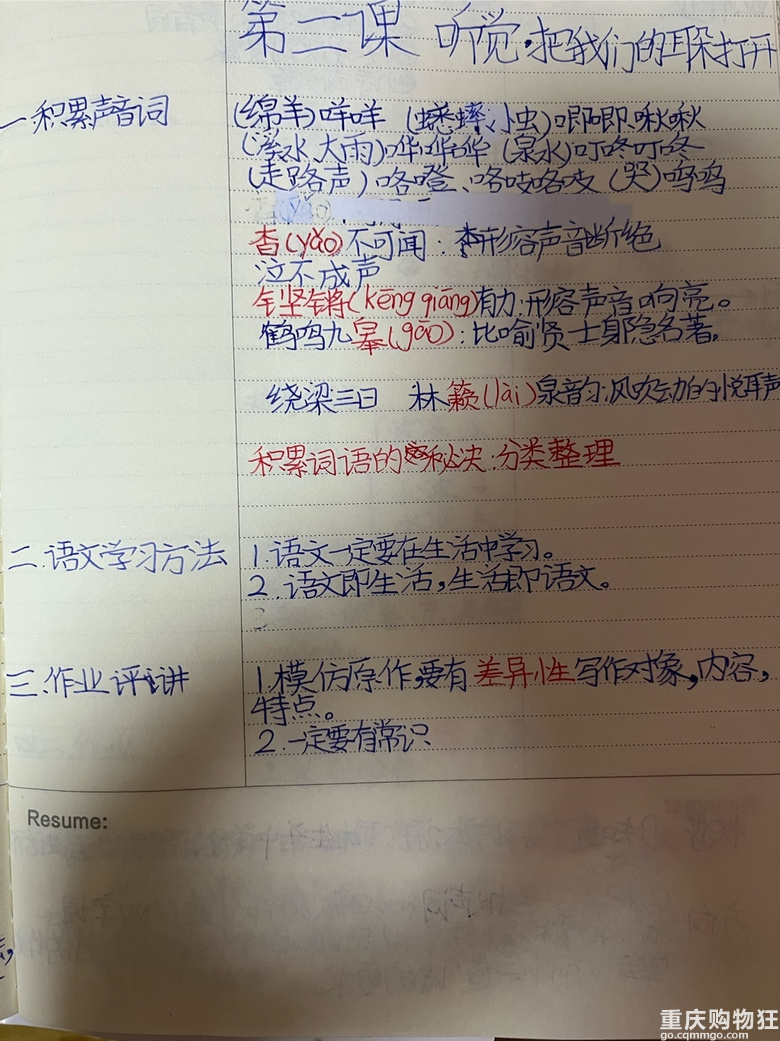 第二课 听觉·把我们的耳朵打开
一.积累声音词
(绵羊)咩咩 (蟋蟀、小虫)唧唧啾啾
(溪水 大雨)哗哗哗 (泉水)叮咚叮咚
(走路声)咯噔、咯吱咯吱 (哭)呜呜
杳(yǎo)不可闻:杳形容声音断绝
泣不成声
铿锵(kēng qiāng)有力:形容声音响亮。
鹤鸣九皋(gāo):比喻贤士身隐名著。
绕梁三日 林籁(lài)泉韵:风吹动的悦耳声
积累词语的秘诀:分类整理
二.语文学习方法
1.语文一定要在生活中学习。
2.语文即生活,生活即语文。
三.作业评讲
1.模仿原作,要有差异性写作对象,内容,
特点。
2.一定要有常识
Resume:
重庆购物狂
go.cqmmgo.com